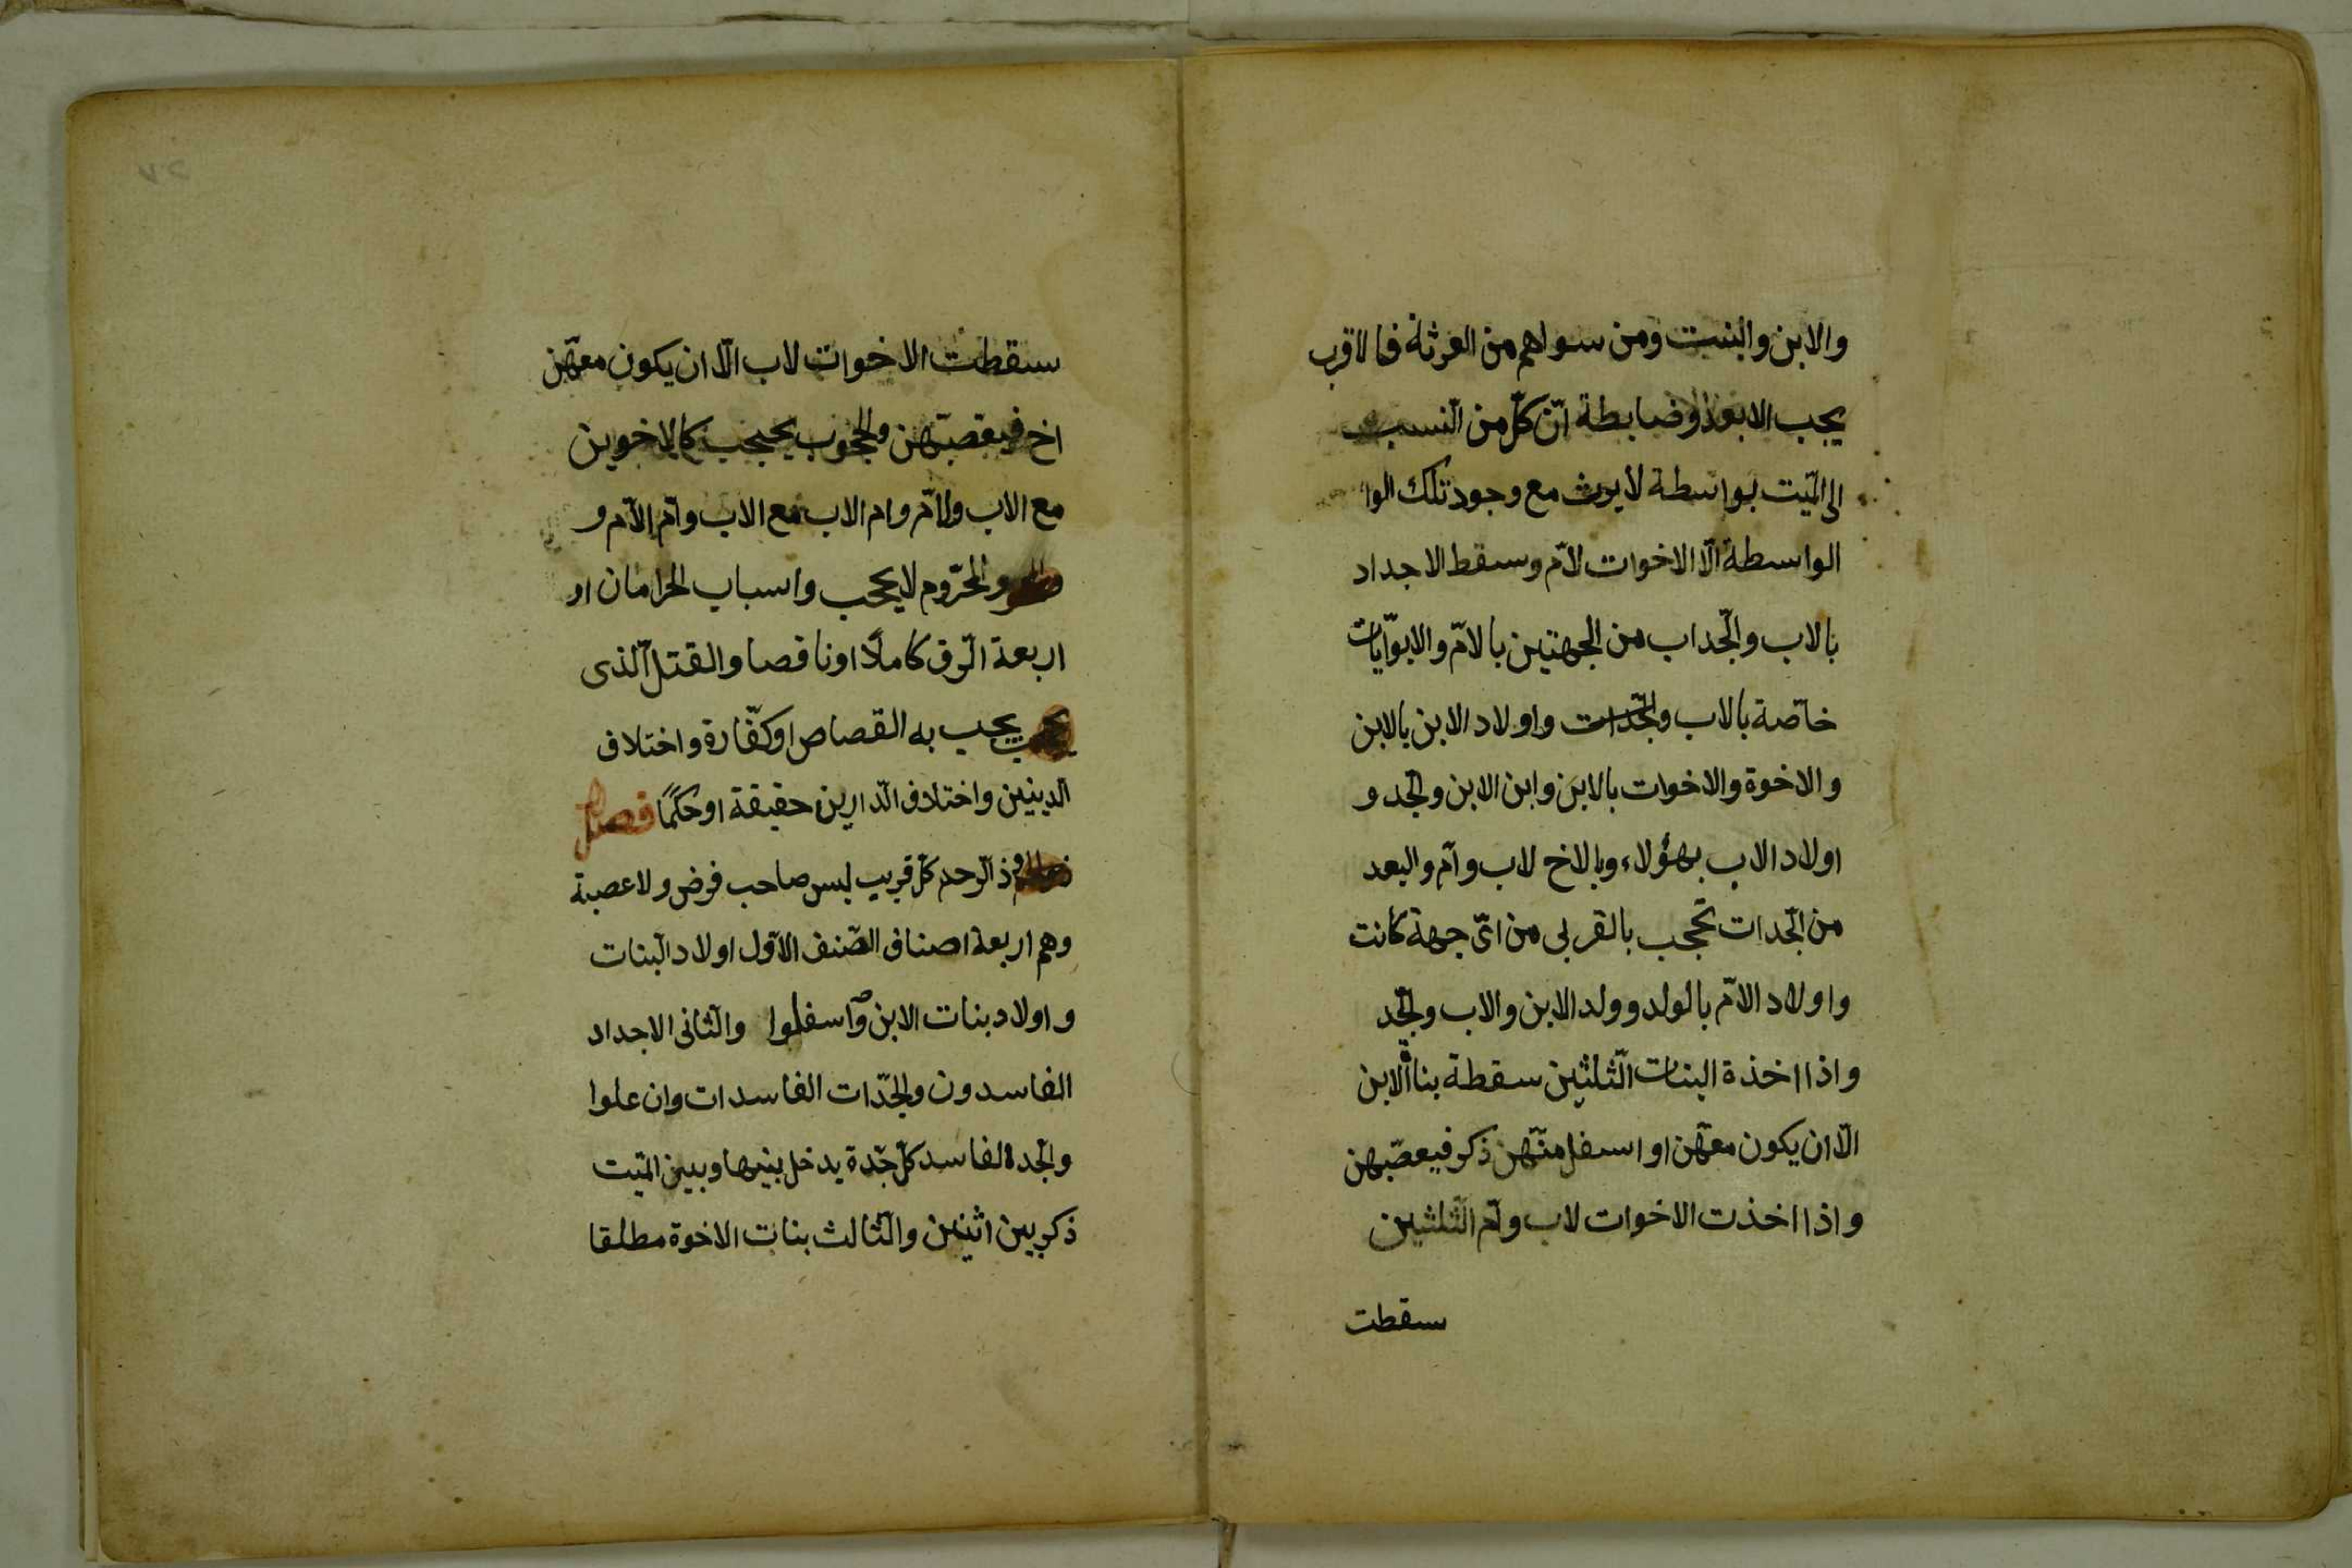 والابن والبنت ومن سواهم من الورثة فالاقرب
يحجب الابعد وضابطة انّ كلّ من انتسب
الى الميّت بواسطة لا يرث مع وجود تلك الوا
الواسطة الّا الاخوات لامّ وسقط الاجداد
بالاب والجّداب من الجهتين بالامّ والابوّايات
خاصّة بالاب والجّدات واولاد الابن بالابن
والاخوة والاخوات بالابن وابن الابن والجّد و
اولاد الاب بهؤلاء وبالاخ لاب وامّ والبعد
من الجّدات تحجب بالقربى من اىّ جهة كانت
واولاد الامّ بالولد وولد الابن والاب والجّد
واذا اخذة البنات الثّلثين سقطة بناة الابن
الّا ان يكون معهّن او اسفل منهّن ذكر فيعصّبهن
واذا اخذت الاخوات لاب وامّ الثّلثين
سقطت
سقطت الاخوات لاب الّا ان يكون معهّن
اخ فيعصبّهن والمحجوب يحجب كالاخوين
مع الاب والامّ وام الاب مع الاب وامّ الامّ و
والمحرّوم لا يحجب واسباب الحرامان ار
اربعة الرّق كاملًا او ناقصا والقتل الّذى
يجب به القصاص او كفّارة واختلاف
الدينين واختلاف الدّارين حقيقة او حكمًا فصل
ذ الرّحم كلّ قريب ليس صاحب فرض ولا عصبة
وهم اربعة اصناف الصّنف الاوّل اولاد البنات
واولاد بنات الابن وآسفلوا والثّانى الاجداد
الفاسدون والجّدات الفاسدات وان علوا
والجّدة الفاسد كلّ جّدة يدخل بينها وبين الميّت
ذكر بين اثنين والثّالث بنات الاخوة مطلقا